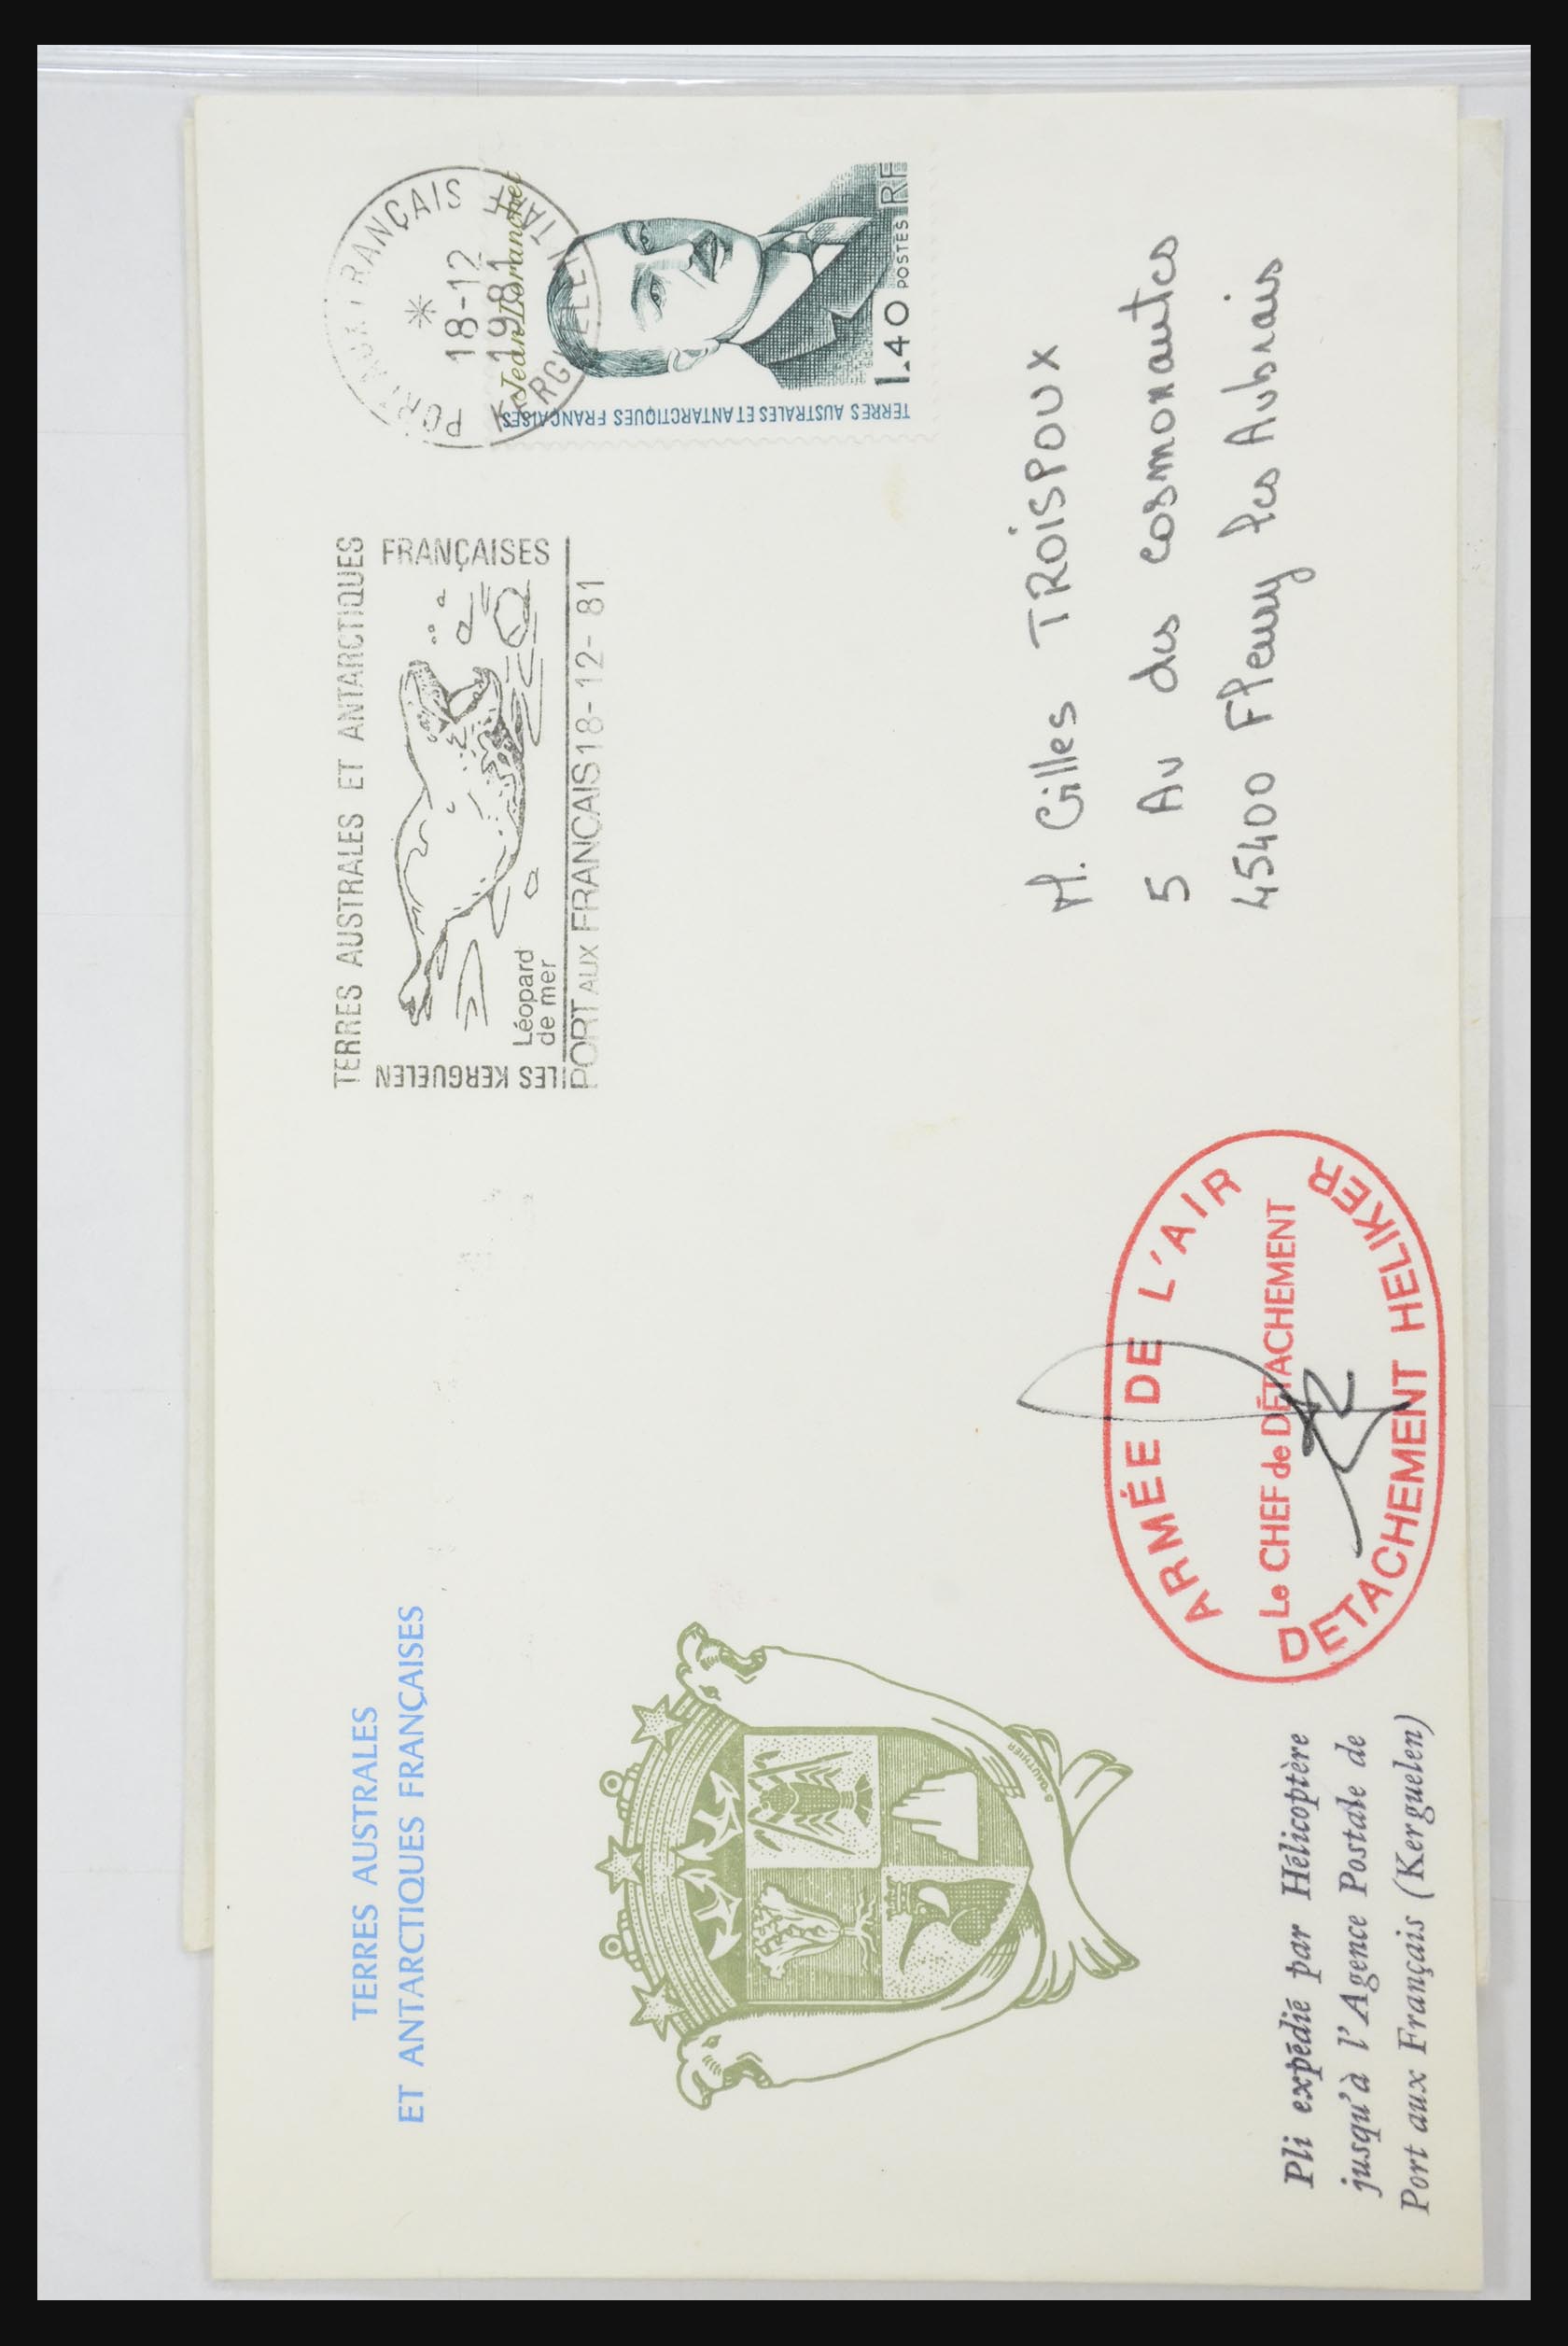 TERRES AUSTRALES
ET ANTARCTIQUES FRANÇAISES
TERRES AUSTRALES ET ANTARCTIQUES
FRANÇAISES
ILES KERGUELEN
Léopard
de mer
PORT AUX FRANÇAIS 18-12-81
PORT AUX FRANÇAIS
18-12
1981
KERGUELEN TAAF
Jean Loranchet
TERRES AUSTRALES ET ANTARCTIQUES FRANÇAISES
1.40 POSTES RF
M. Gilles TROISPOUX
5 Av des cosmonautes
45400 Fleury les Aubrais
ARMÉE DE L'AIR
Le CHEF de DÉTACHEMENT
DETACHEMENT HELIKER
B. GAUTHIER
Pli expédié par Hélicoptère
jusqu'à l'Agence Postale de
Port aux Français (Kerguelen)